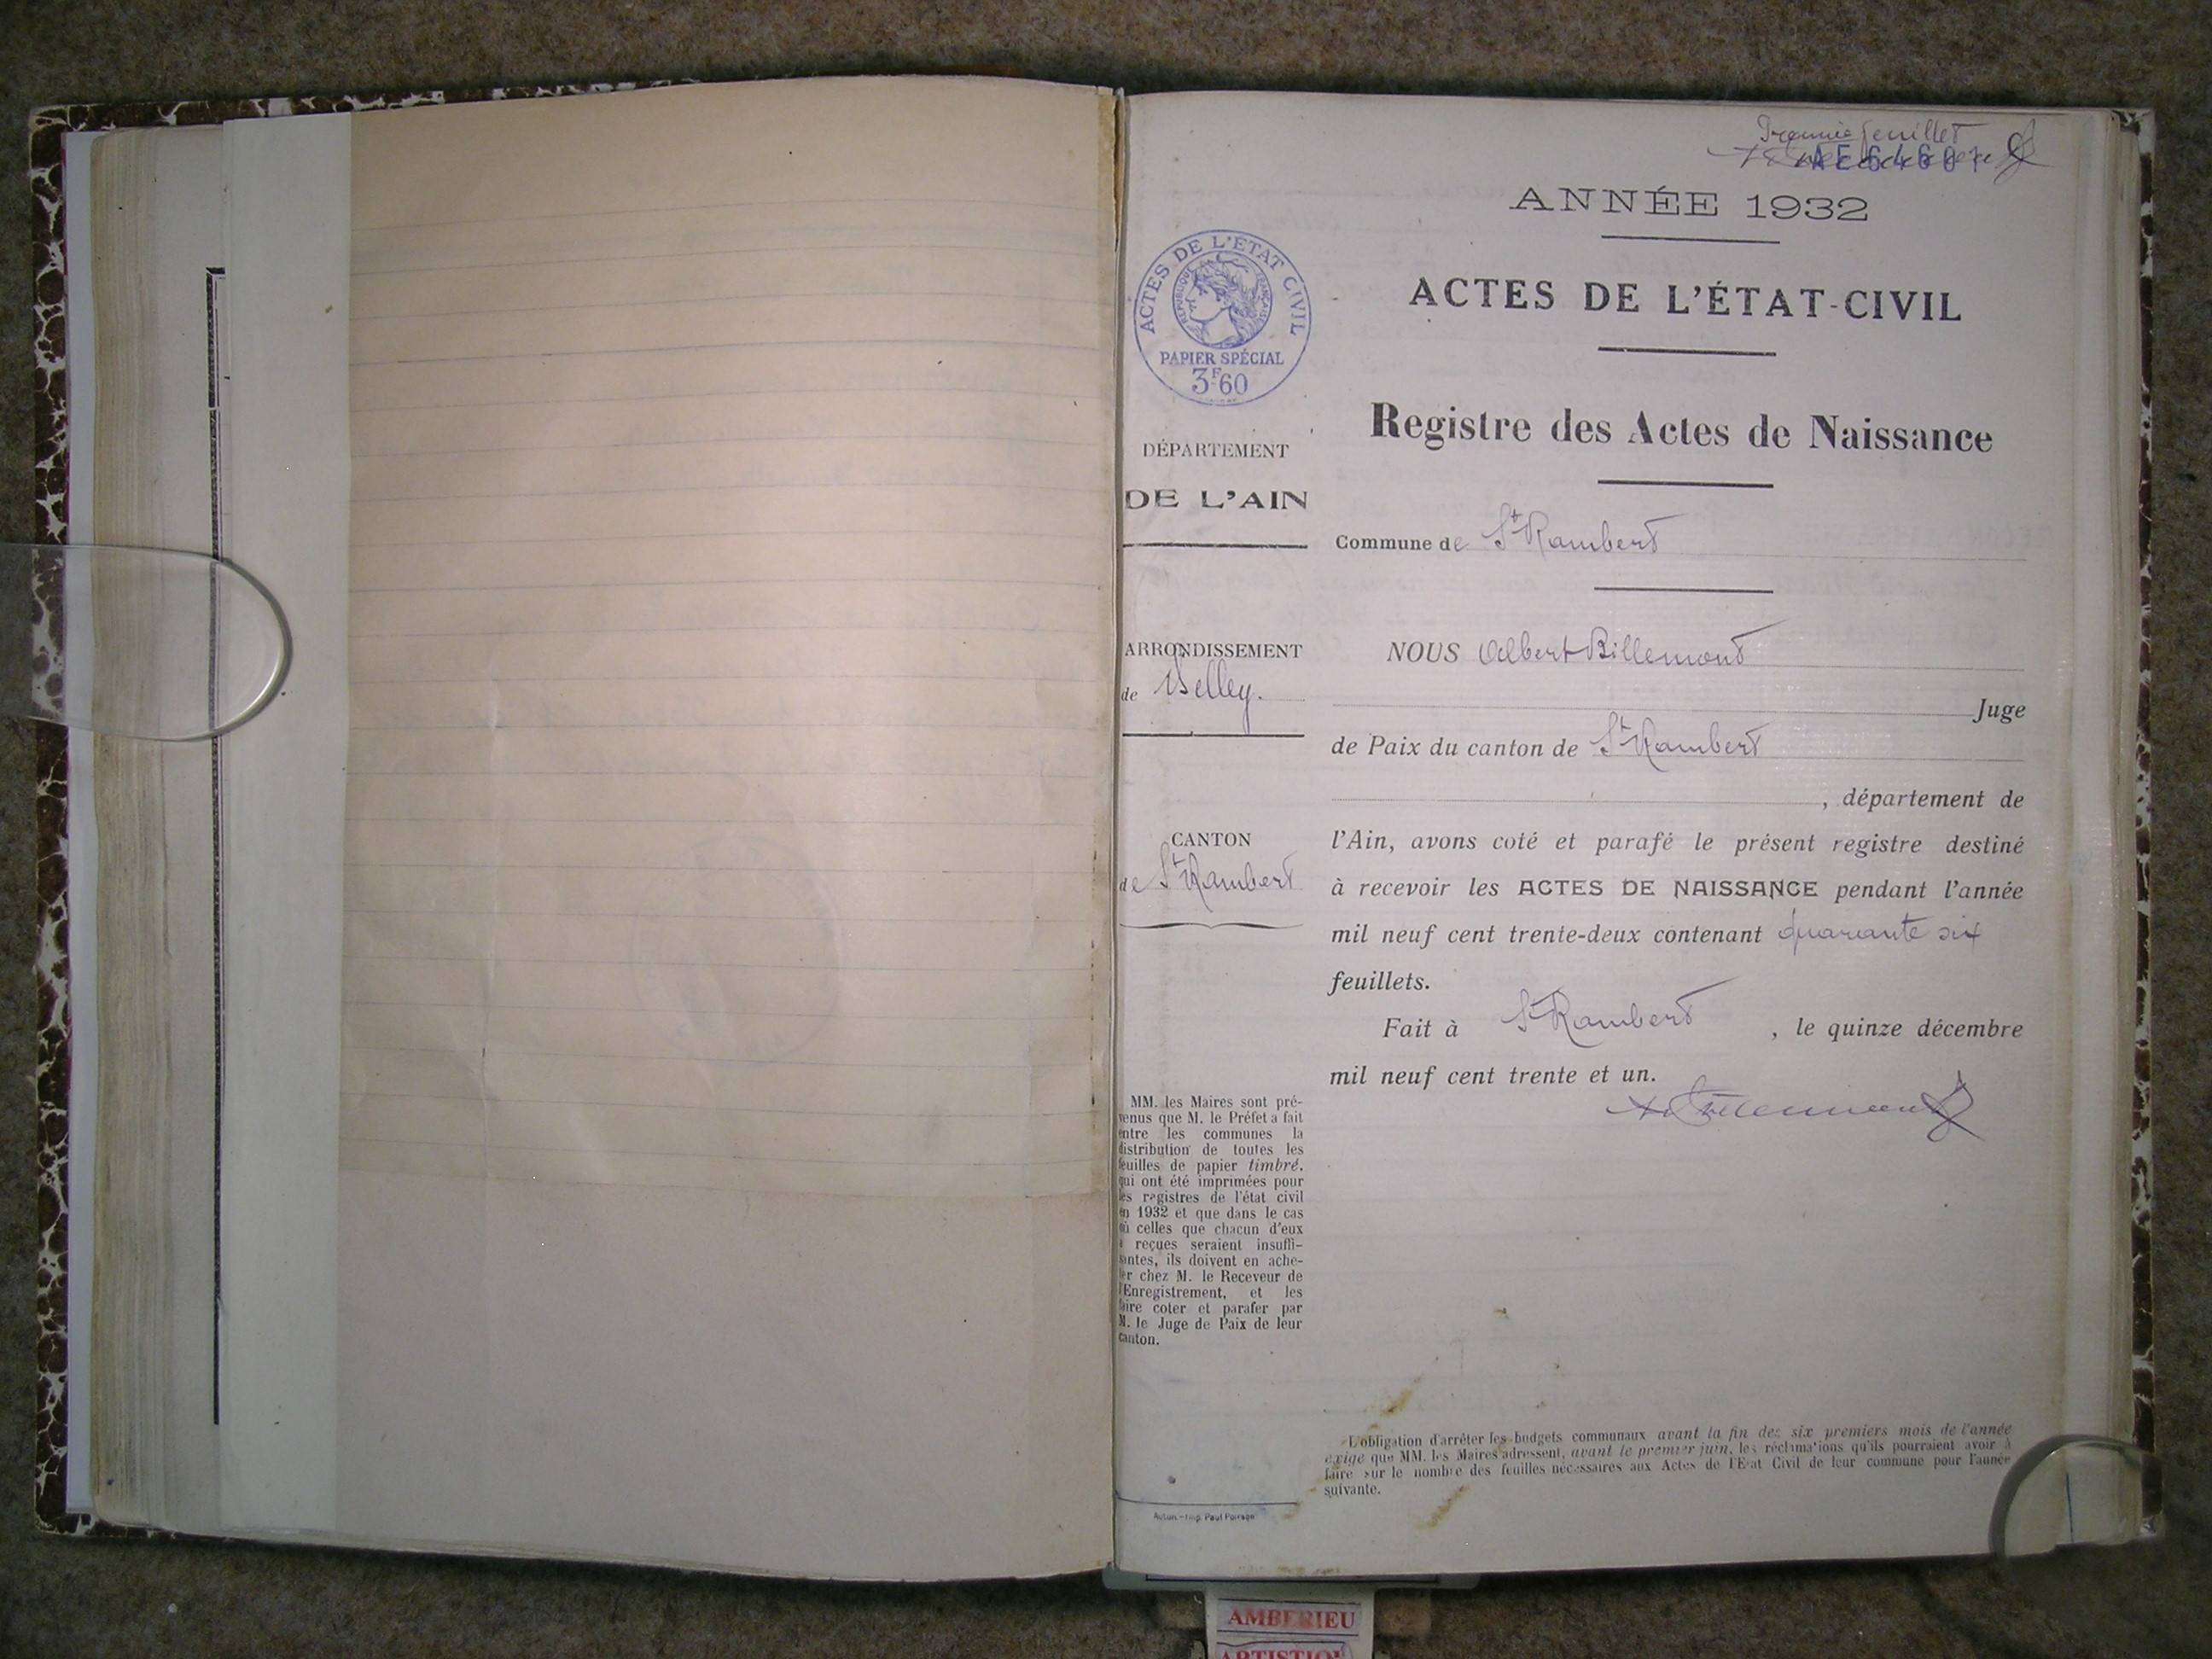 Premier feuillet
ANNÉE 1932
ACTES DE L'ÉTAT-CIVIL
Registre des Actes de Naissance
Commune de St Rambert
NOUS Albert Billemont
Juge
de Paix du canton de St Rambert
, département de
l'Ain, avons coté et parafé le présent registre destiné
à recevoir les ACTES DE NAISSANCE pendant l'année
mil neuf cent trente-deux contenant quarante six
feuillets.
Fait à St Rambert , le quinze décembre
mil neuf cent trente et un.
L'obligation d'arrêter les budgets communaux avant la fin des six premiers mois de l'année
exige que MM. les Maires adressent, avant le premier juin, les réclamations qu'ils pourraient avoir à
faire sur le nombre des feuilles nécessaires aux Actes de l'Etat Civil de leur commune pour l'année
suivante.
ACTES DE L'ÉTAT CIVIL
RÉPUBLIQUE FRANÇAISE
PAPIER SPÉCIAL
3F60
DÉPARTEMENT
DE L'AIN
ARRONDISSEMENT
de Belley.
CANTON
de St Rambert
MM. les Maires sont pré-
venus que M. le Préfet a fait
entre les communes la
distribution de toutes les
feuilles de papier timbré,
qui ont été imprimées pour
les registres de l'état civil
en 1932 et que dans le cas
où celles que chacun d'eux
a reçues seraient insuffi-
santes, ils doivent en ache-
ter chez M. le Receveur de
l'Enregistrement, et les
faire coter et parafer par
M. le Juge de Paix de leur
canton.
Autun - Imp. Paul
AMBERIEU